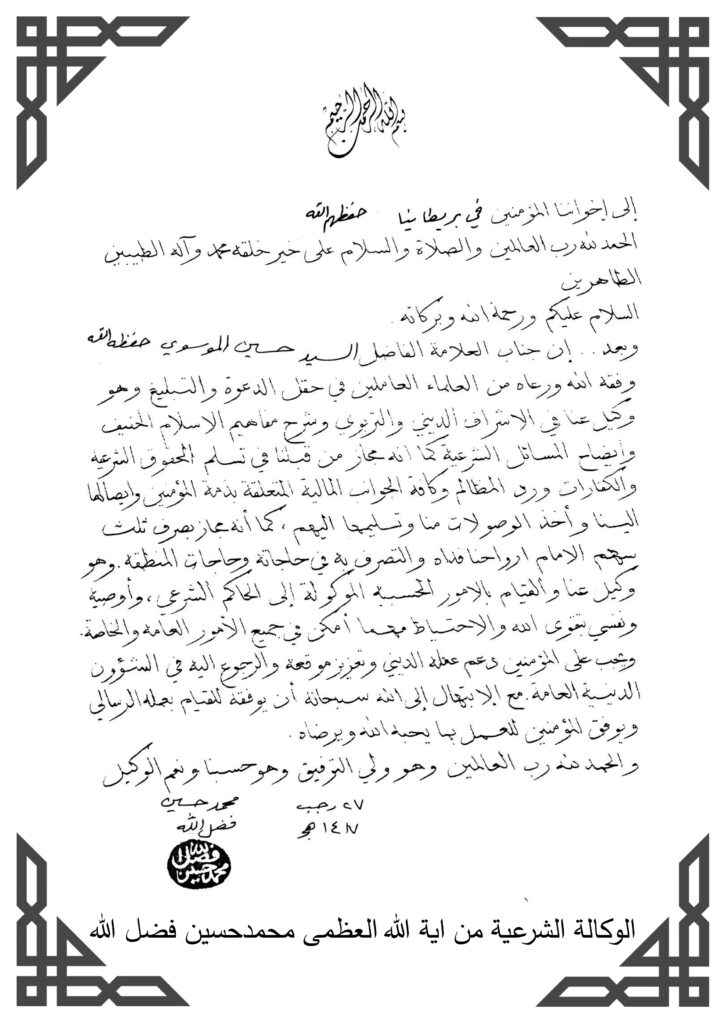 بسم الله الرحمن الرحيم
إلى إخواننا المؤمنين في بريطانيا حفظهم الله
الحمد لله رب العالمين والصلاة والسلام على خير خلقه محمد وآله الطيبين
الطاهرين
السلام عليكم ورحمة الله وبركاته.
وبعد... إن جناب العلامة الفاضل السيد حسين الموسوي حفظه الله
وفقه الله ورعاه من العلماء العاملين في حقل الدعوة والتبليغ وهو
وكيل عنا في الاشراف الديني والتربوي وشرح مفاهيم الاسلام الحنيف
وإيضاح المسائل الشرعية كما انه مجاز من قبلنا في تسلم الحقوق الشرعية
والكفارات ورد المظالم وكافة الجوانب المالية المتعلقة بذمة المؤمنين وايصالها
الينا وأخذ الوصولات منا وتسليمها اليهم، كما أنه مجاز بصرف ثلث
سهم الامام ارواحنا فداه والتصرف به في حاجاته وحاجات المنطقة. وهو
وكيل عنا والقيام بالامور الحسبية الموكولة إلى الحاكم الشرعي، وأوصيه
ونفسي بتقوى الله والاحتياط مهما أمكن في جميع الأمور العامة والخاصة.
ويجب على المؤمنين دعم عمله الديني وتعزيز موقعه والرجوع اليه في الشؤون
الدينية العامة. مع الابتهال إلى الله سبحانه أن يوفقه للقيام بعمله الرسالي
ويوفق المؤمنين للعمل بما يحبه الله ويرضاه.
والحمد لله رب العالمين وهو ولي التوفيق وهو حسبنا ونعم الوكيل
٢٧ رجب محمد حسين
١٤١٧ هـ فضل الله
فضل الله
محمد حسين
الوكالة الشرعية من اية الله العظمى محمدحسين فضل الله